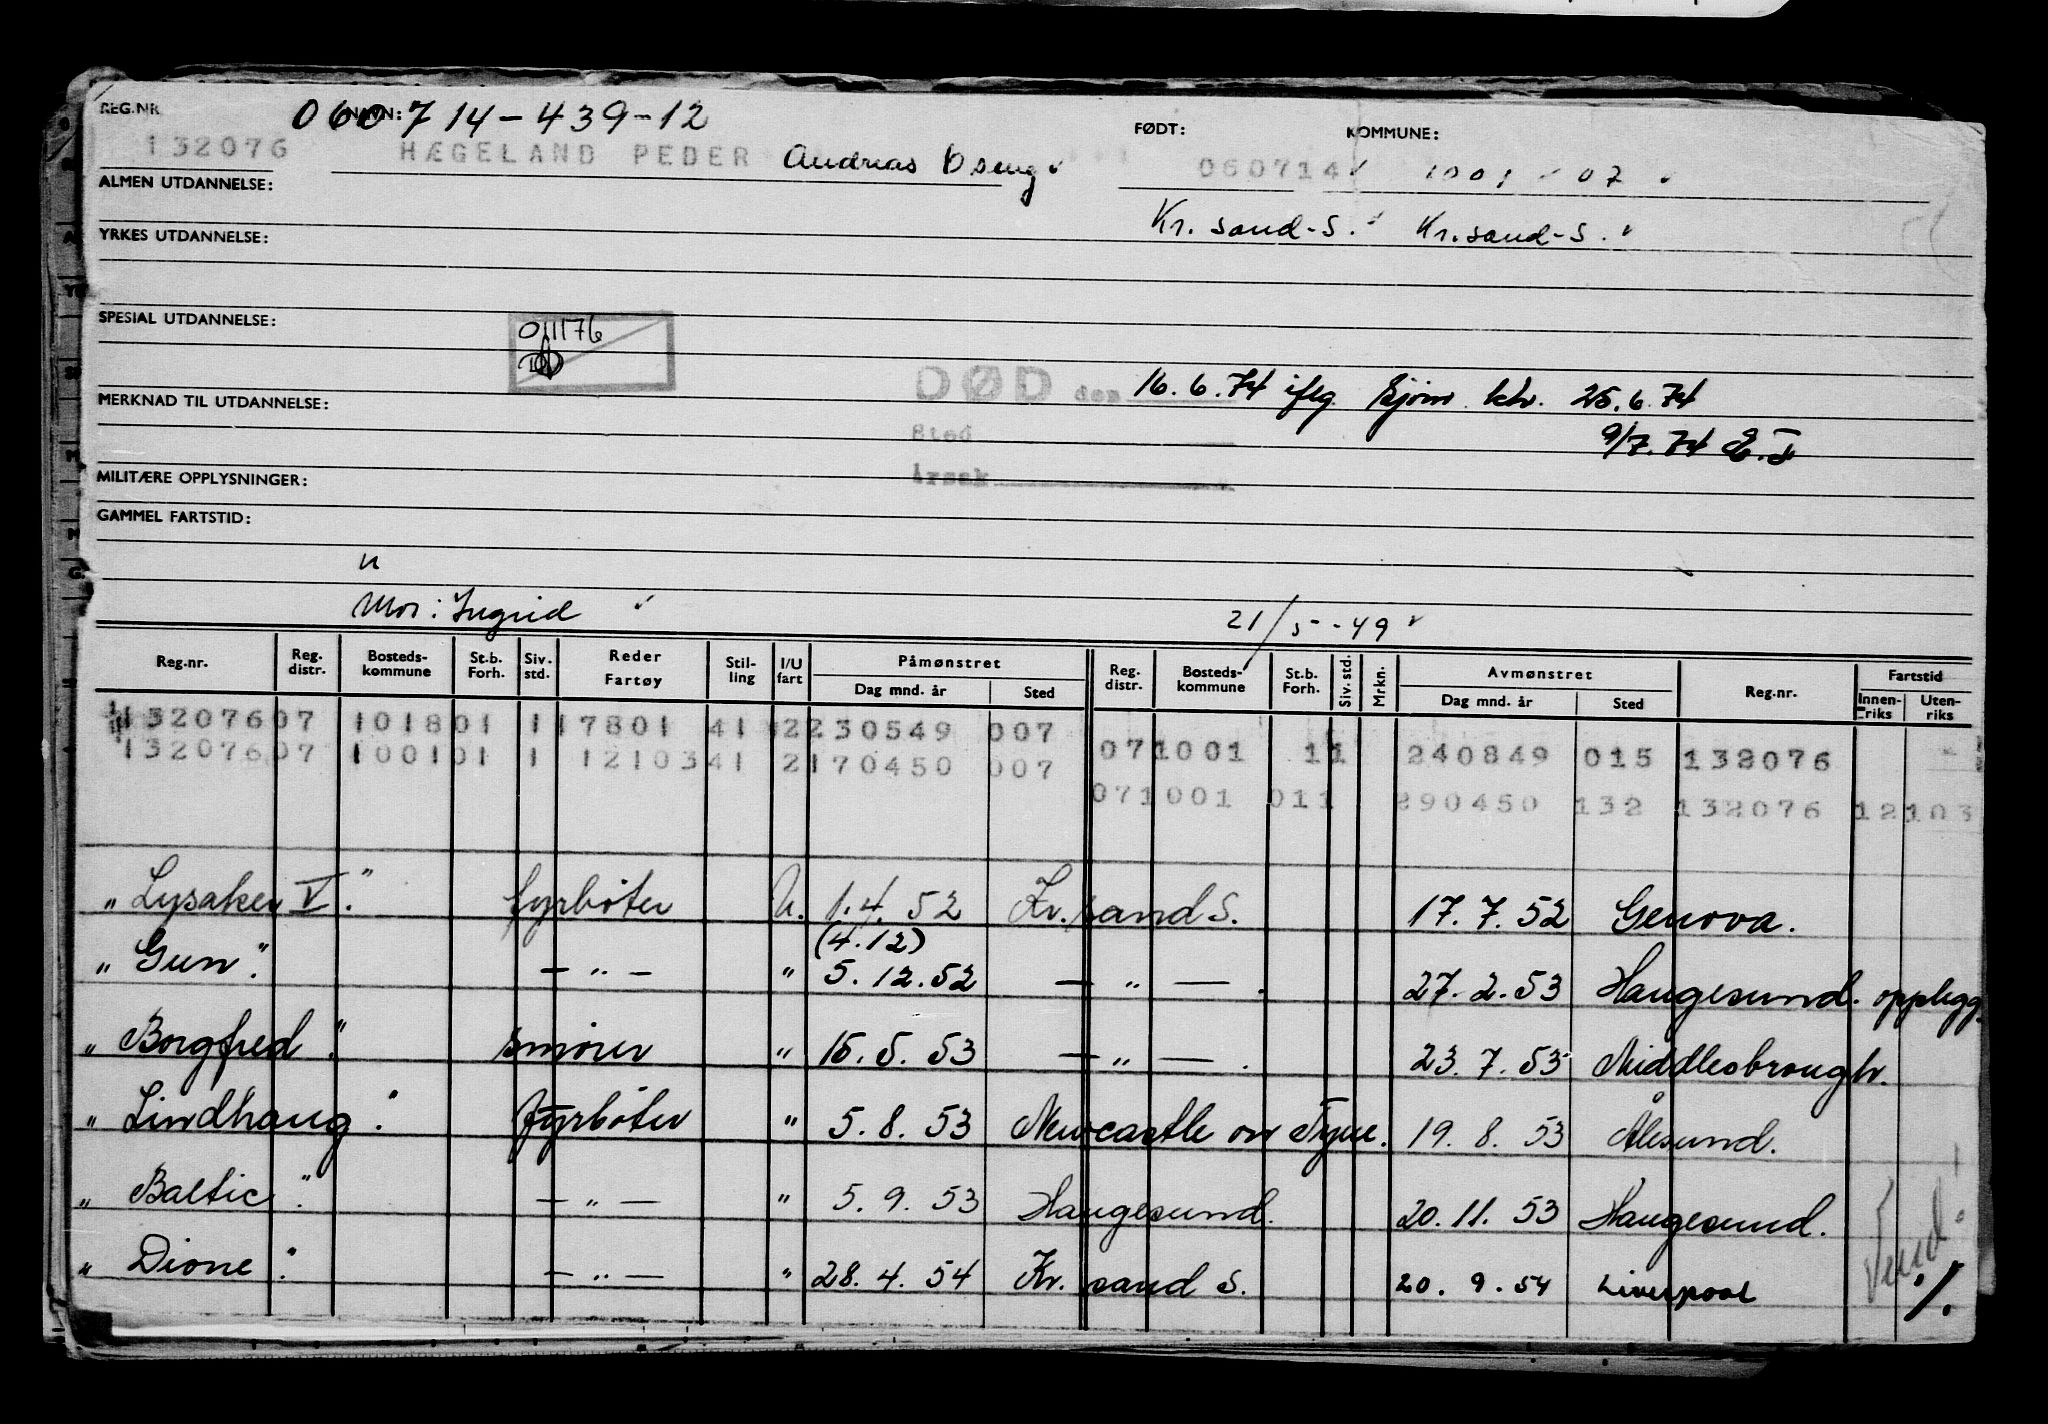 REG.NR. NAVN: 060714-439-12 FØDT: KOMMUNE:
132076 HÆGELAND PEDER Andreas Oseng 060714 1001 07
ALMEN UTDANNELSE:
Kr. sand-S. Kr. sand-S.
YRKES UTDANNELSE:
SPESIAL UTDANNELSE:
011176
DØD den 16.6.74 iflg. sjøm. ktr. 25.6.74
MERKNAD TIL UTDANNELSE:
Sted 9/7.74 E.T
MILITÆRE OPPLYSNINGER:
Årsak
GAMMEL FARTSTID:
u
Mor: Ingrid 21/5-49
Reg.nr. Reg. distr. Bosteds-kommune St.b. Forh. Siv. std. Reder Fartøy Stil-ling I/U fart Påmønstret Dag mnd. år Sted Reg. distr. Bosteds-kommune St.b. Forh. Siv. std. Mrkn. Avmønstret Dag mnd. år Sted Reg.nr. Fartstid Innen-riks Uten-riks
132076 07 1018 01 1 17801 41 2 230549 007 071001 11 240849 015 132076
132076 07 1001 01 1 12103 41 2 170450 007 071001 011 290450 132 132076 12103
"Lysaker V". fyrbøter U. 1.4.52 Kr.sand S. 17.7.52 Genova.
(4.12)
"Gun". — " — " 5.12.52 — " — . 27.2.53 Haugesund. opplegg.
"Borgfred". smører " 15.5.53 — " — . 23.7.53 Middlesbrough.
"Lindhaug". fyrbøter " 5.8.53 Newcastle on Tyne. 19.8.53 Ålesund.
"Baltic". — " — " 5.9.53 Haugesund. 20.11.53 Haugesund.
"Dione". — " — " 28.4.54 Kr. sand S. 20.9.54 Liverpool
Vend ./.